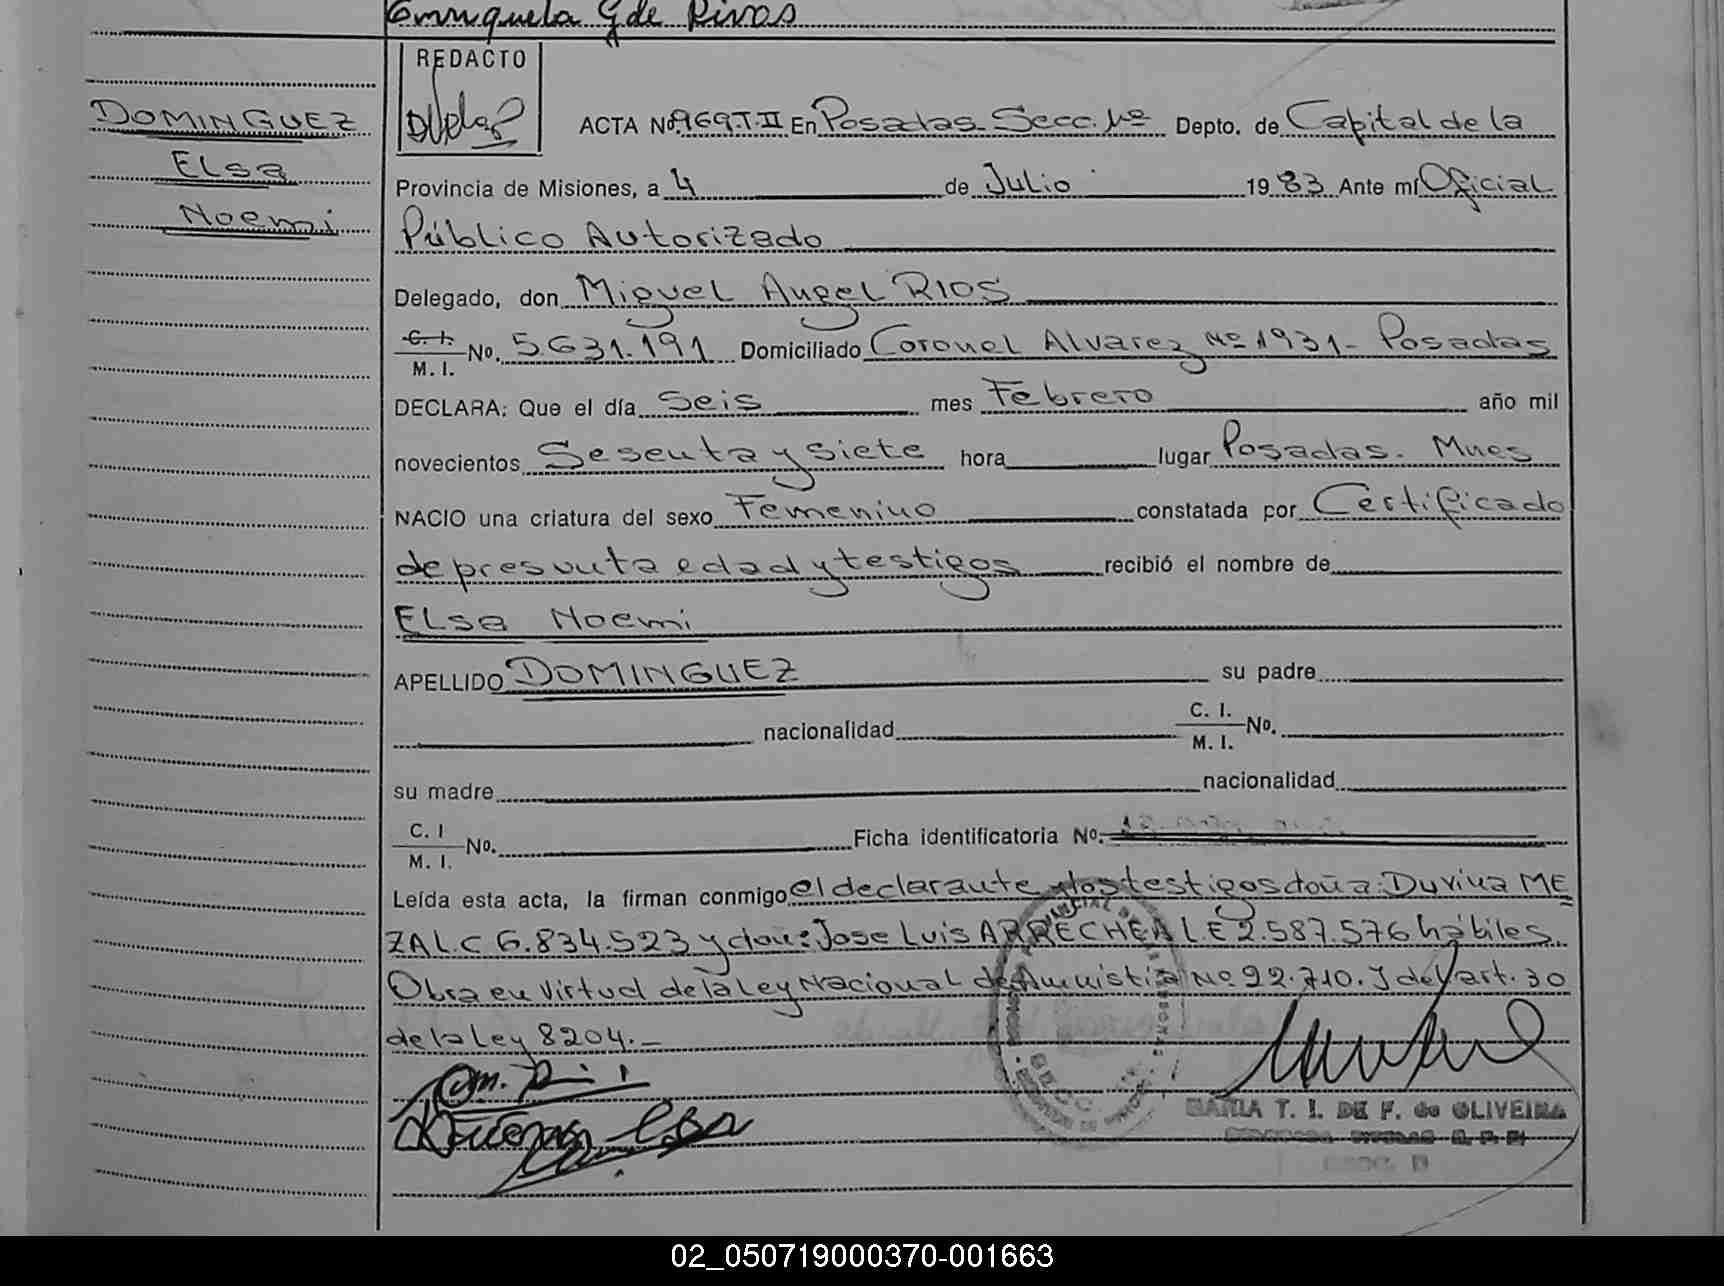 Enriqueta G de Rivas
REDACTO
DOMINGUEZ
ELsa
Noemi
ACTA No. 969.T.II En Posadas Secc. Nº Depto. de Capital de la
Provincia de Misiones, a 4 de Julio 1983 Ante mí Oficial
Público Autorizado
Delegado, don Miguel Angel RIOS
C. I. / M. I. No. 5.631.191 Domiciliado Coronel Alvarez Nº 1931 - Posadas
DECLARA: Que el día seis mes Febrero año mil
novecientos Sesenta y siete hora lugar Posadas. Mnes
NACIO una criatura del sexo Femenino constatada por Certificado
de presunta edad y testigos recibió el nombre de
ELsa Noemi
APELLIDO DOMINGUEZ su padre
nacionalidad C. I. / M. I. No.
su madre nacionalidad
C. I / M. I. No. Ficha identificatoria No.
Leída esta acta, la firman conmigo el declarante y los testigos doña: Duvina ME
ZA L.C 6.834.523 y don: Jose Luis ARRECHEA L E 2.587.576 hábiles.
Obra en virtud de la Ley Nacional de Amnistia Nº 22.710. y del art. 30
de la Ley 8204. —
MARIA T. I. DE F. de OLIVEIRA
02_050719000370-001663